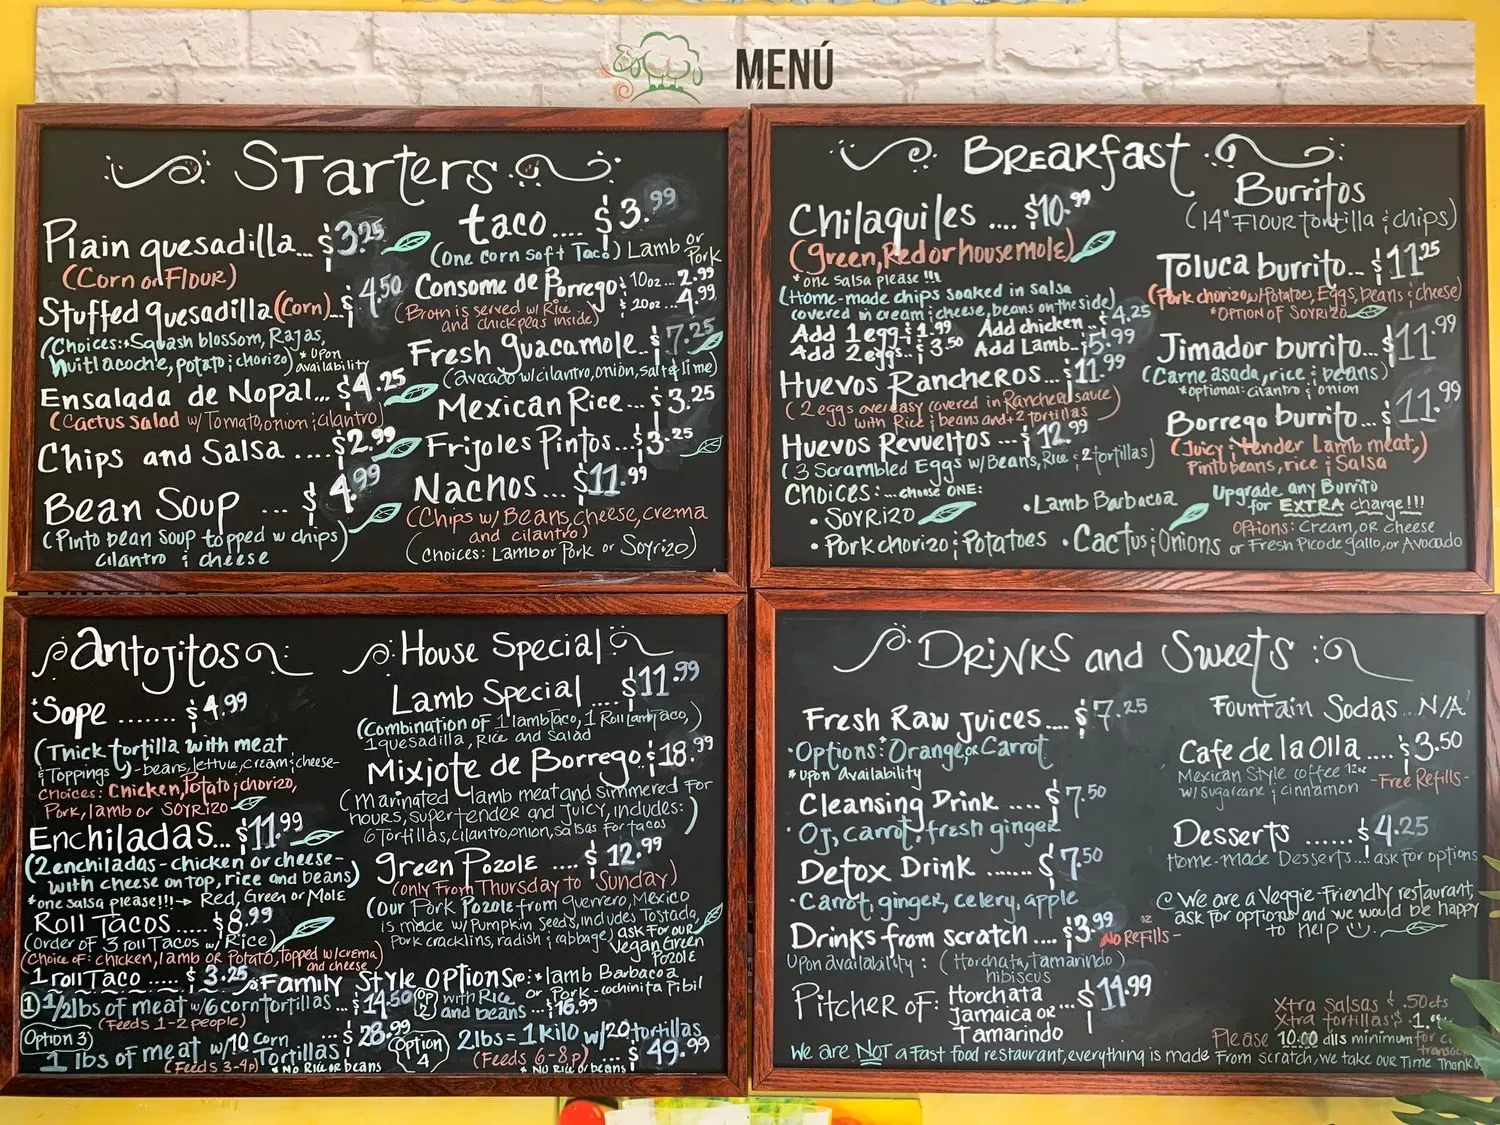 MENÚ
Starters
Plain quesadilla... $3.25
(Corn or Flour)
Stuffed quesadilla (Corn)... $4.50
(Choices: *Squash blossom, Rajas,
huitlacoche, potato ; chorizo) *upon
availability
Ensalada de Nopal... $4.25
(Cactus salad w/ Tomato, onion ; cilantro)
Chips and Salsa .... $2.99
Bean Soup ... $4.99
(Pinto bean soup topped w chips)
cilantro ; cheese
taco.... $3.99
(one corn soft Taco) Lamb or
Pork
Consome de Borrego: 10oz... 2.99
$ 20oz... 4.99
(Broth is served w/ Rice
and chickpeas inside)
Fresh guacamole.. $7.25
(avocado w/cilantro, onion, salt & lime)
Mexican Rice... $3.25
Frijoles Pintos...$3.25
Nachos... $11.99
(Chips w/ Beans, cheese, crema
and cilantro)
(choices: Lamb or Pork or Soyrizo)
Breakfast
Chilaquiles .... $10.99
(Green, Red or house mole)
*one salsa please !!!
(Home-made chips soaked in salsa
covered in cream ; cheese, beans on the side)
Add 1 egg.. $1.99 Add chicken.. $4.25
Add 2 eggs.. $3.50 Add Lamb.. $5.99
Huevos Rancheros... $11.99
(2 eggs over easy covered in Ranchero sauce)
with Rice ; beans and + 2 tortillas
Huevos Revueltos ... $12.99
(3 Scrambled Eggs w/Beans, Rice ; 2 tortillas)
Choices: ... choose ONE:
• Soyrizo
• Lamb Barbacoa
• Pork chorizo ; Potatoes • Cactus ; Onions
Burritos
(14" Flour tortilla ; chips)
Toluca burrito... $11.25
(Pork chorizo w/Potatoes, Eggs, beans ; cheese)
*Option of Soyrizo
Jimador burrito... $11.99
(Carne asada, rice ; beans)
*optional: cilantro ; onion
Borrego burrito... $11.99
(Juicy ; tender Lamb meat,)
Pinto beans, rice ; Salsa
Upgrade any Burrito
for EXTRA charge!!!
Options: Cream, or cheese
or Fresh Pico de gallo, or Avocado
Antojitos
*Sope ....... $4.99
(Thick tortilla with meat
; Toppings) -beans, lettuce, cream ; cheese-
Choices: Chicken, Potato ; chorizo,
Pork, lamb or Soyrizo
Enchiladas... $11.99
(2 enchiladas - chicken or cheese -
with cheese on top, rice and beans)
*one salsa please!!! → Red, Green or Mole
Roll Tacos ... $8.99
(Order of 3 roll Tacos w/ Rice)
(Choice of: chicken, lamb or Potato, Topped w/crema)
and cheese
1 roll Taco ..... $3.25
House Special
Lamb Special .... $11.99
(Combination of 1 lamb Taco, 1 Roll lamb Taco,)
1 quesadilla, Rice and Salad
Mixiote de Borrego. $18.99
(marinated lamb meat and simmered for
hours, super tender and juicy, includes:
6 Tortillas, cilantro, onion, salsas for tacos)
Green Pozole .... $12.99
(only From Thursday to Sunday)
(Our Pork Pozole from Guerrero, Mexico
is made w/ Pumpkin seeds, includes Tostada,
Pork cracklins, radish ; cabbage) ask for our
Vegan Green
Pozole
Family Style Options: *lamb Barbacoa
or Pork-cochinita pibil
① 1/2 lbs of meat w/6 corn tortillas ... $14.50
(Feeds 1-2 people)
Op 2 with Rice
and beans ...$16.99
Option 3
1 lbs of meat w/10 corn
Tortillas ... $28.99
(Feeds 3-4p) *No Rice or beans
Option 4 2lbs = 1 Kilo w/20 tortillas
(Feeds 6-8p) ... $49.99
* No Rice or beans
Drinks and Sweets
Fresh Raw juices.... $7.25
• Options: Orange, or Carrot
*upon Availability
Cleansing Drink .... $7.50
• OJ, carrot, fresh ginger
Detox Drink ....... $7.50
• Carrot, ginger, celery, apple
Drinks from scratch .... $3.99 No Refills -
Upon availability: (Horchata, Tamarindo)
hibiscus
Pitcher of: Horchata
Jamaica or
Tamarindo
... $14.99
Fountain Sodas... N/A
Cafe de la Olla .... $3.50
Mexican Style coffee 12oz
w/sugarcane ; cinnamon - Free Refills -
Desserts ...... $4.25
Home-made Desserts.... ask for options
We are a Veggie-Friendly restaurant,
ask for options and we would be happy
to help
Xtra Salsas $ .50cts
Xtra tortillas $
Please 10.00 dlls minimum for
We are NOT a Fast food restaurant, everything is made From scratch, we take our Time